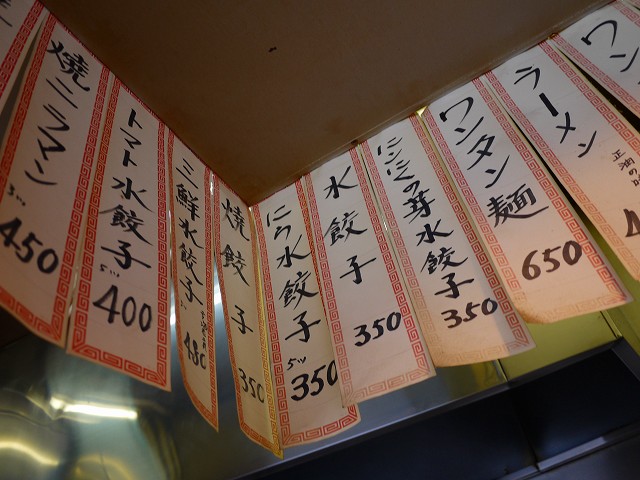 焼ニラマン
3コ
450
トマト水餃子
5コ
400
三鮮水餃子
480
焼餃子
350
にら水餃子
5コ
350
水餃子
350
にんにくの芽水餃子
350
ワンタン麺
650
ラーメン
正油の
ワン